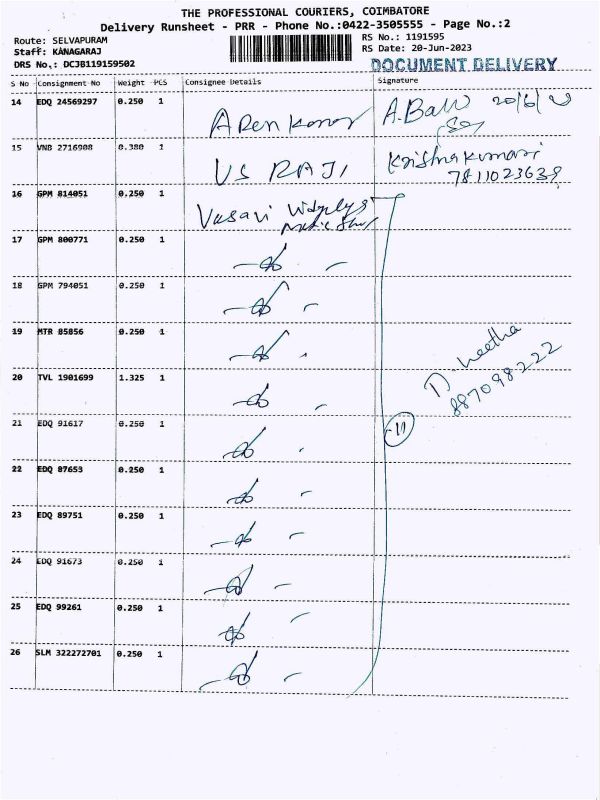 THE PROFESSIONAL COURIERS, COIMBATORE
Delivery Runsheet - PRR - Phone No.:0422-3505555 - Page No.:2
Route: SELVAPURAM
RS No.: 1191595
Staff: KANAGARAJ
RS Date: 20-Jun-2023
DRS No.: DCJB119159502
DOCUMENT DELIVERY
S No Consignment No Weight PCS Consignee Details Signature
14 EDQ 24569297 0.250 1
20/6/
15 VNB 2716908 0.380 1 VS RAJI Krishnakumari
7811023638
16 GPM 814051 0.250 1 Vasavi
17 GPM 800771 0.250 1
18 GPM 794051 0.250 1
19 MTR 85856 0.250 1
20 TVL 1901699 1.325 1
D. Neetha
887098222
21 EDQ 91617 0.250 1 11
22 EDQ 87653 0.250 1
23 EDQ 89751 0.250 1
24 EDQ 91673 0.250 1
25 EDQ 99261 0.250 1
26 SLM 322272701 0.250 1